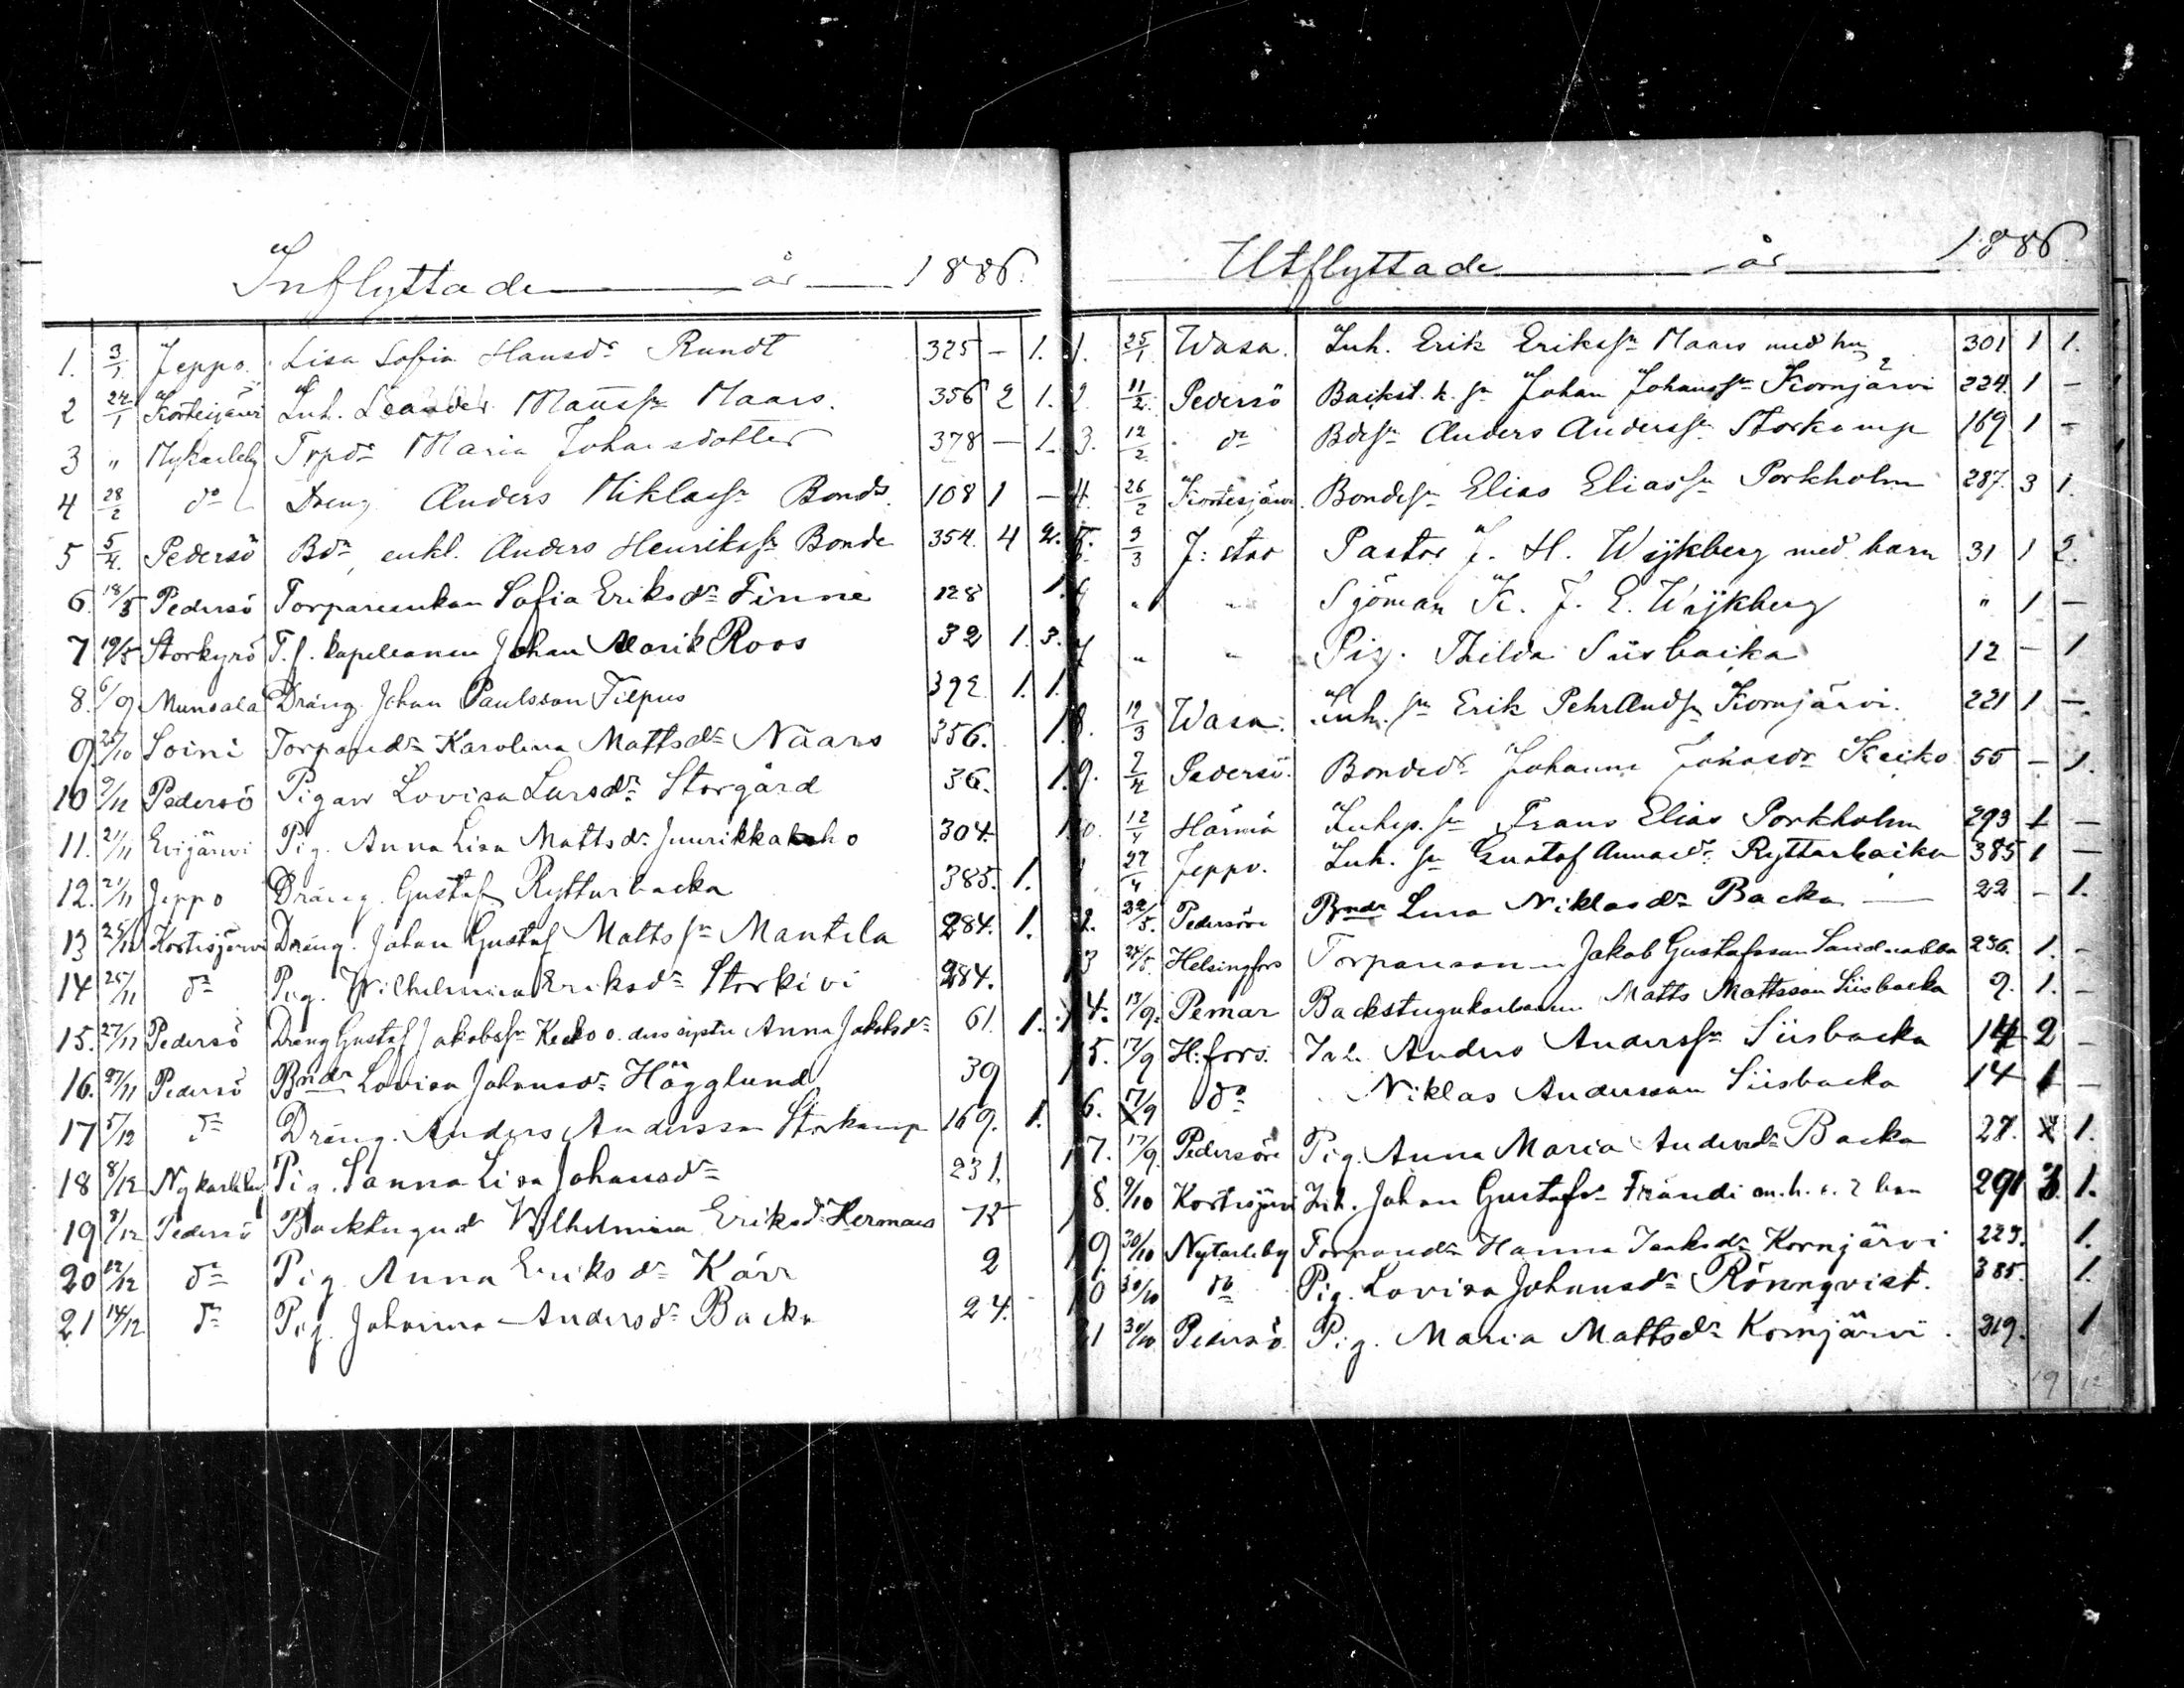 Inflyttade år 1886.
1. 3/1 Jeppo. Lisa Sofia Hansdr Rundt 325 – 1.
2 24/1 Kortesjärvi Inh. Leander Mattssn Maars. 356 2 1.
3 " Nykarleby Trpdr Maria Johansdotter 378 – 1.
4 28/2 do Dreng Anders Niklassn Bonds. 108 1 –
5 5/4. Pedersö Bdr, enkl. Anders Henrikssn Bonde 354. 4 2.
6. 18/5 Pedersö Torpareenkan Sofia Eriksdr Finne 128 1.
7 19/5 Storkyrö T.f. kapellanen Johan Alarik Roos 32 1. 3.
8. 6/9 Munsala Dräng. Johan Paulsson Filpus 392 1. 1.
9 25/10 Soini Torparedr Karolina Mattsdr Naars 356. 1.
10 9/11 Pedersö Pigan Lovisa Larsdr Storgård 36. 1.
11. 21/11 Evijärvi Pig. Anna Lisa Mattsdr Juurikkakoho 304. 1.
12. 21/11 Jeppo Dräng. Gustaf Ryttarbacka 385. 1.
13 25/11 Kortesjärvi Dräng. Johan Gustaf Mattssn Mantela 284. 1.
14 25/11 do Pig. Wilhelmina Eriksdr Storkivi 284.
15. 27/11 Pedersö Dräng Gustaf Jakobssn Keko o. dess syster Anna Jakobsdr 61. 1. 1
16. 27/11 Pedersö Bndr Lovisa Johansdr Högglund 39
17 5/12 do Dräng. Anders Andersson Storkamp 169. 1.
18 8/12 Nykarleby Pig. Sanna Lisa Johansdr 231.
19 8/12 Pedersö Backstugudr Vilhelmina Eriksdr Hermans 75
20 12/12 do Pig Anna Eriksdr Kärr 2
21 14/12 do Pig. Johanna Andersdr Backa 24.
Utflyttade år 1886.
1. 25/1 Wasa. Inh. Erik Erikssn Maars med hu 301 1 1.
2. 11/2. Pedersö Backst. k. sn Johan Johanssn Kornjärvi 224. 1 –
3. 12/2 do Bdesn Anders Anderssn Storkamp 169 1 –
4. 26/2 Kortesjärvi Bondesn Elias Eliassn Porkholm 287. 3 1.
5. 3/3 J: stad Pastor J. H. Wijkberg med barn 31 1 2.
6 " " Sjöman K. J. E. Wijkberg " 1 –
7 " " Pig. Thilda Siisbacka 12 – 1
8. 19/3 Wasa. Inh. sn Erik PehrAndsn Kornjärvi. 221 1 –
9. 2/4 Pedersö. Bondedr Johanna Johasdr Keiko 55 – 1.
10. 12/4 Härmä Inhys. sn Frans Elias Porkholm 293 1 –
1 27/4 Jeppo. Inh. sn Gustaf Annasdr Ryttarbacka 385 1 –
2. 22/5. Pedersöre Bndr Lena Niklasdr Backa 22 – 1.
3 24/5. Helsingfors Torparesonen Jakob Gustafsson Sandnabba 236. 1. –
4. 13/9. Pemar Backstugukarlssonen Matts Mattsson Siisbacka 9. 1. –
15. 17/9 H:fors. Inh. Anders Anderssn Siisbacka 14 2 –
6. 17/9 do Niklas Andersson Siisbacka 14 1 –
17. 17/9. Pedersöre Pig. Anna Maria Andersdr Backa 27. 1.
18. 9/10 Kortesjärvi Inh. Johan Gustafsn Frändi m. h. o. 2 barn 291 3. 1.
19 30/10 Nykarleby Torparedr Hanna Isaksdr Kornjärvi 223. 1.
0 30/10 do Pig. Lovisa Johansdr Rönnqvist. 385. 1.
21 30/10 Pedersö. Pig. Maria Mattsdr Kornjärvi. 219. 1
19 12